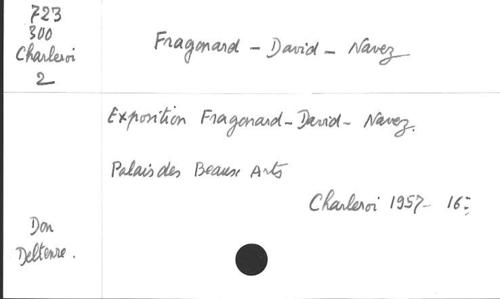 723
300
Charleroi
2
Fragonard - David - Navez
Exposition Fragonard - David - Navez.
Palais des Beaux Arts
Charleroi 1957 - 16=
Don
Deltenre.